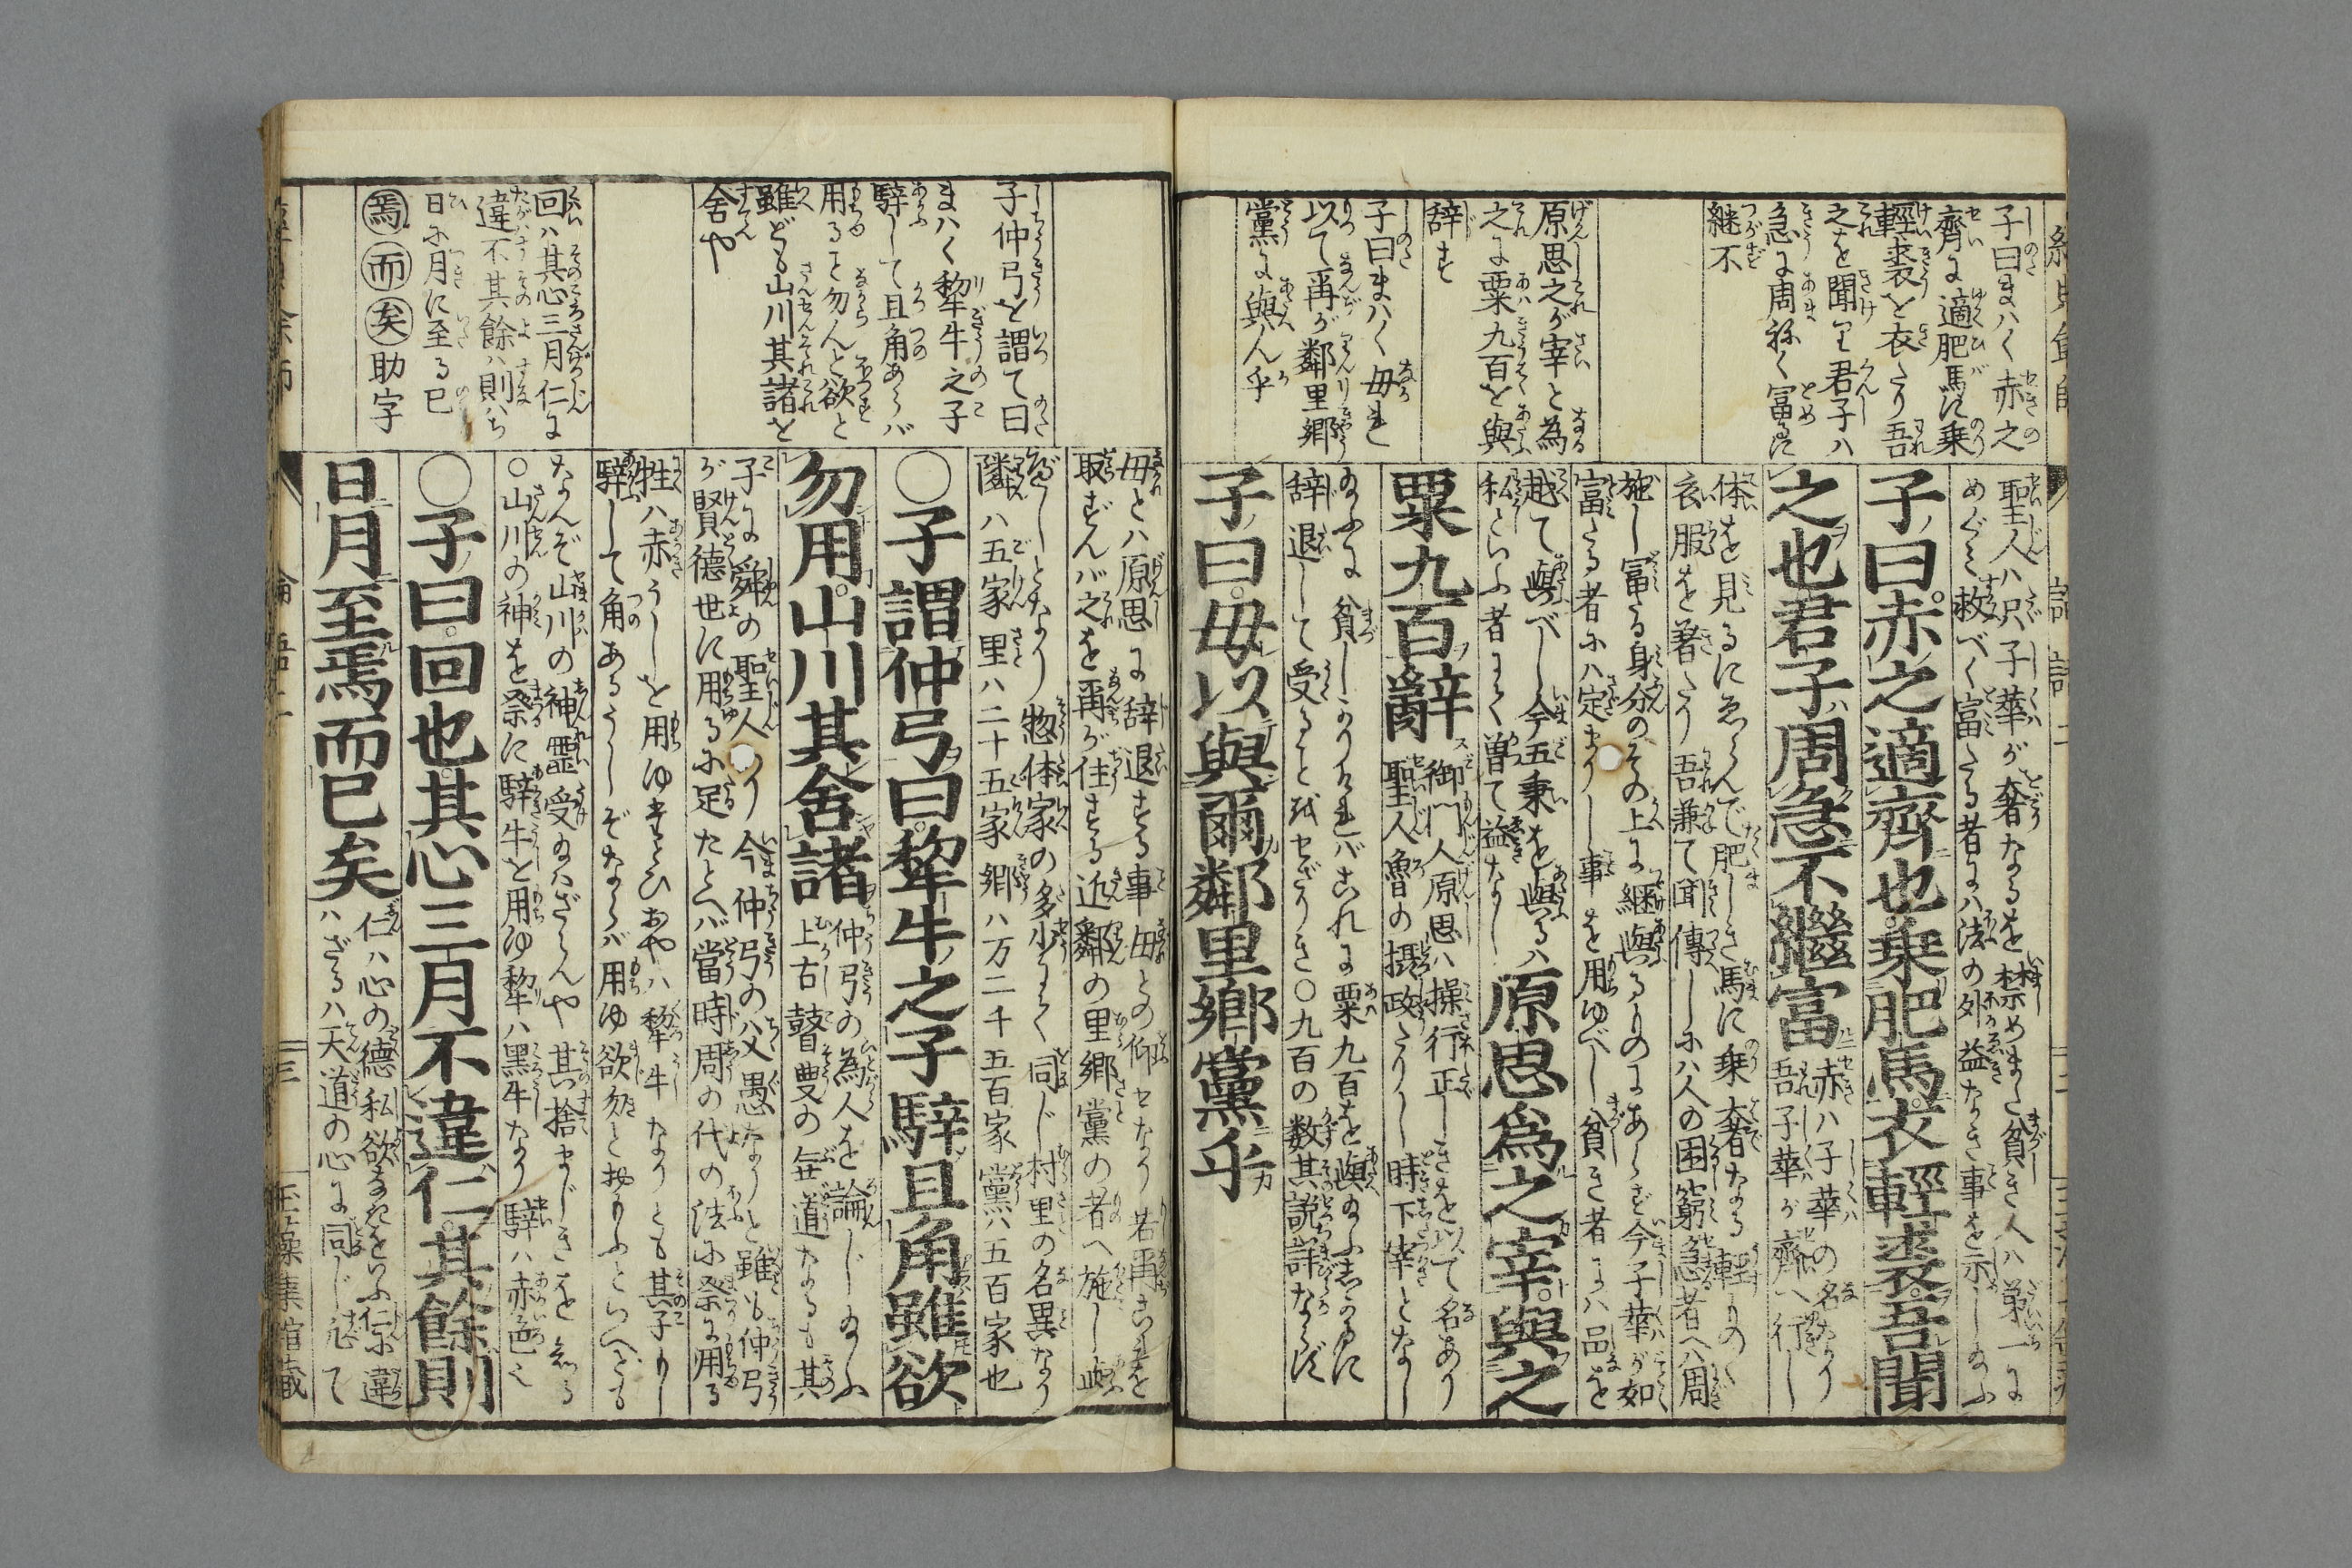 子曰まハく赤之
齊に適肥馬に乗
輕裘を衣たり吾
之を聞り君子ハ
急に周ねく富るに
継不
原思之が宰と為
之に粟九百を與
辞す
子曰まハく毋れ
以て爾が鄰里郷
黨に與ん乎
聖人ハ只子華が奢なるを禁めました貧き人ハ第一に
めぐミ救べく富たる者にハ法の外益なき事を示し給ふ
子曰。赤之適齊也。乘肥馬。衣輕裘。吾聞
之也君子周急不繼富
赤ハ子華の名なり
吾子華が齊へ行し
体を見るに
肥しき馬に乗奢なる軽きもの
衣服を着たり吾兼て聞傳しにハ人の困窮急者へハ周
施し富る身分のその上に継與るものにあらず今子華が如
富たる者にハ定まりし事を用ゆべし貧き者にハ品を
越て與べし今五秉を與るハ
私といふ者にて曽て益なし
原思爲之宰。與之
粟九百。辭
御門人原思ハ操行正しきを以て名あり
聖人魯の摂政たりし時下宰となし
給ふに貧しかりけれバこれに粟九百を與給ふ
辞退して受ること
せざりき〇九百の数其説詳ならず
子曰。毋以與爾鄰里鄉黨乎
毋とハ原思に辞退する事毋との仰せなり若
取ずんバ之を爾が住する近鄰の里郷黨の者へ施し與
となり惣体家の多少にて同じ村里の名異なり
隣ハ五家里ハ二十五家郷ハ万二千五百家黨ハ五百家也
〇子謂仲弓曰。犂牛之子騂且角雖欲
勿用。山川其舍諸
仲弓の為人を論じ給ふ
上古瞽叟の無道なるも其
子に舜の聖人あり今仲弓の父愚なりと雖も仲弓
が賢徳世に用るに足たとへバ當時周の代の法に祭に用る
牲ハ赤うしを用ゆ
おやハ犂牛なりとも其子
騂して角あるうしぞならバ用ゆ欲勿と
なんぞ山川の神霊受給ハざらんや其捨まじきを
〇山川の神を祭に騂牛を用ゆ犂ハ黒牛なり騂ハ赤色也
〇子曰。回也。其心三月不違仁。其餘則
日月至焉而已矣
仁ハ心の徳私欲なきをいふ仁に違
ハざるハ天道の心に同じ
子仲弓を謂て曰
まハく犂牛之子
騂して且角あらバ
用ると勿んと欲と
雖ども山川其諸を
舍や
回ハ其心三月仁に
違不其餘ハ則ち
日に月に至る已
焉 而 矣 助字